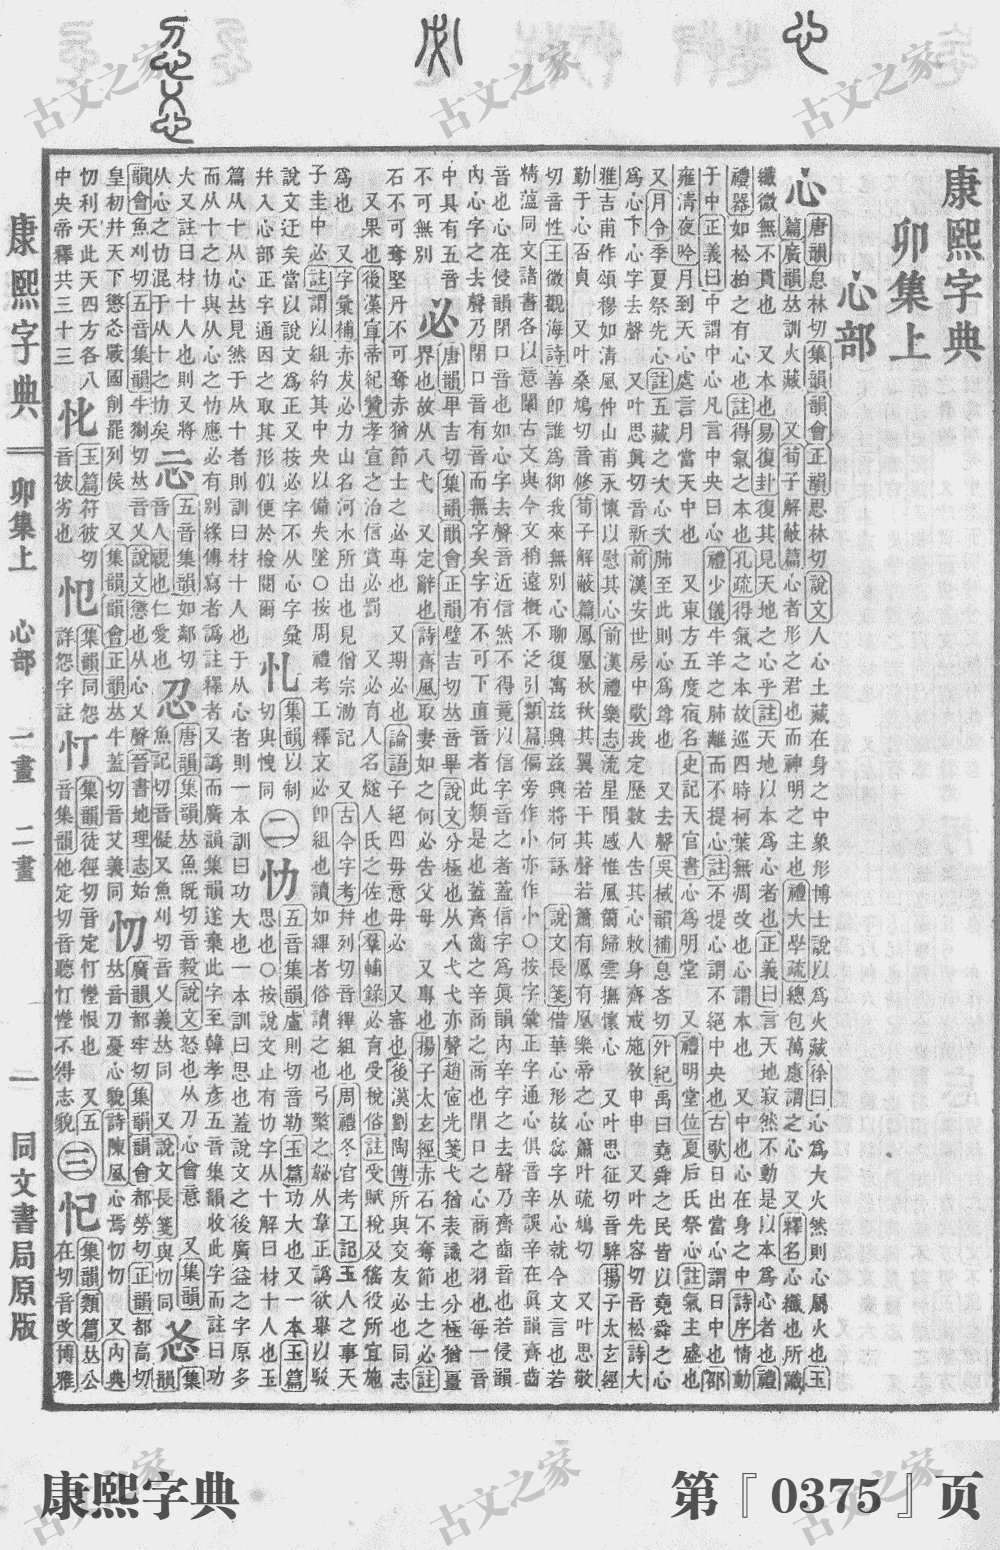 康熙字典
卯集上
心部
心 唐韻息林切集韻韻會正韻思林切說文人心土藏在身之中象形博士說以爲火藏徐曰心爲大火然則心屬火也玉
篇廣韻𠀤訓火藏 又荀子解蔽篇心者形之君也而神明之主也禮大學疏總包萬慮謂之心 又釋名心纖也所識
纖微無不貫也 又本也易復卦復其見天地之心乎註天地以本爲心者也正義曰言天地寂然不動是以本爲心者也禮
禮器如松柏之有心也註得氣之本也孔疏得氣之本故巡四時柯葉無凋改也心謂本也 又中也心在身之中詩序情動
于中正義曰中謂中心凡言中央曰心禮少儀牛羊之肺離而不提心註不提心謂不絕中央也古歌日出當心謂日中也邵
雍淸夜吟月到天心處言月當天中也 又東方五度宿名史記天官書心爲明堂 又禮明堂位夏后氏祭心註氣主盛也
又月令季夏祭先心註五藏之次心次肺至此則心爲尊也 又去聲吳棫韻補息吝切外紀禹曰堯舜之民皆以堯舜之心
爲心下心字去聲 又叶思眞切音新前漢安世房中歌我定歷數人告其心敕身齊戒施敎申申 又叶先容切音松詩大
雅吉甫作頌穆如淸風仲山甫永懷以慰其心前漢禮樂志流星隕感惟風籋歸雲撫懷心 又叶思征切音騂揚子太玄經
勤于心否貞 又叶桑鳩切音修荀子解蔽篇鳳凰秋秋其翼若干其聲若簫有鳳有凰樂帝之心簫叶疏鳩切 又叶思敬
切音性王微觀海詩善卽誰爲御我來無別心聊復寓茲興茲興將何詠 說文長箋借華心形故惢字从心就今文言也若
精薀同文諸書各以意闡古文與今文稍遠槪不泛引類篇偏旁作小亦作㣺○按字彙正字通心俱音辛誤辛在眞韻齊齒
音也心在侵韻閉口音也如心字去聲音近信然不得竟以信字音之者蓋信字爲眞韻內辛字之去聲乃齊齒音也若侵韻
內心字之去聲乃閉口音有音而無字矣字有不可下直音者此類是也蓋齊齒之辛商之商也閉口之心商之羽也每一音
中具有五音
不可無別
必 唐韻𤰞吉切集韻韻會正韻壁吉切𠀤音畢說文分極也从八弋弋亦聲趙宧光箋弋猶表識也分極猶畺
界也故从八弋 又定辭也詩齊風取妻如之何必告父母 又專也揚子太玄經赤石不奪節士之必註
石不可奪堅丹不可奪赤猶節士之必專也 又期必也論語子絕四毋意毋必 又審也後漢劉陶傳所與交友必也同志
又果也後漢宣帝紀贊孝宣之治信賞必罰 又必有人名燧人氏之佐也羣輔錄必育受稅俗註受賦稅及徭役所宜施
爲也 又字彙補赤犮必力山名河水所出也見僧宗泐記 又古今字考幷列切音縪組也周禮冬官考工記玉人之事天
子圭中必註謂以組約其中央以備失墜○按周禮考工釋文必卽組也讀如縪者俗讀之也弓檠之䪐从韋正譌欲舉以駁
說文迂矣當以說文爲正又按必字不从心字彙
幷入心部正字通因之取其形似便於檢閱爾
集韻以制
切與愧同
二
忇 五音集韻盧則切音勒玉篇功大也又一本玉篇
思也○按說文止有忇字从十解曰材十人也玉
篇从十从心𠀤見然于从十者則訓曰材十人也于从心者則一本訓曰功大也一本訓曰思也蓋說文之後廣益之字原多
而从十之忇與从心之忇應必有別緣傳寫者譌註釋者又譌而廣韻集韻遂棄此字至韓孝彥五音集韻收此字而註曰功
大又註曰材十人也則又將
从心之忇混于从十之忇矣
五音集韻如鄰切
音人親也仁愛也
忍 唐韻集韻𠀤魚旣切音毅說文怒也从刀心會意 又集韻
魚記切音儗又魚刈切音乂義𠀤同 又說文長箋與忉同
集韻
韻會魚刈切五音集韻牛㓷切𠀤音乂說文懲也从心乂聲晉書地理志始
皇初幷天下懲忞戰國削罷列侯 又集韻韻會正韻𠀤牛蓋切音艾義同
忉 廣韻都牢切集韻韻會都勞切正韻都高切
𠀤音刀憂心貌詩陳風心焉忉忉 又內典
忉利天此天四方各八
中央帝釋共三十三
玉篇符彼切
音被劣也
集韻同怨
詳怨字註
忊 集韻徒徑切音定忊憕恨也 又五
音集韻他定切音聽忊憕不得志貌
三
集韻類篇𠀤公
在切音改博雅
康熙字典 卯集上 心部 一畫 二畫 一 同文書局原版
古文之家
古文之家
古文之家
康熙字典
第『0375』页
古文之家
古文之家
古文之家